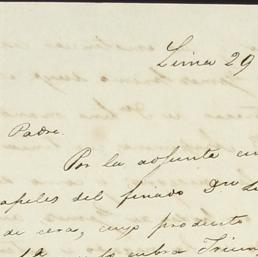 Lima 29
Padre.
Por la adjunta cu
apeles del finado
de cera, cuyo producto
cubra